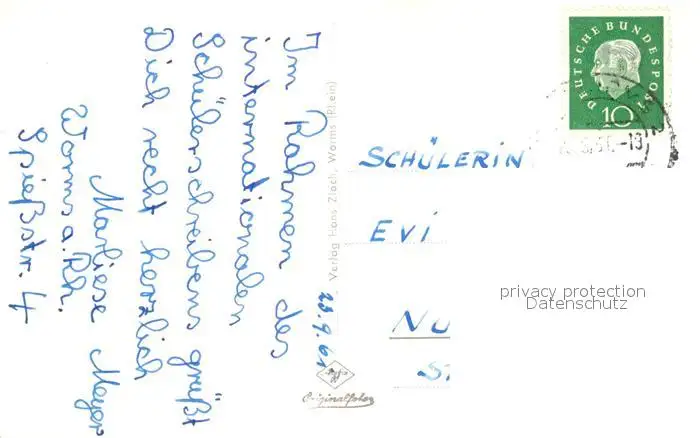 Im Rahmen des
internationalen
Schülerschreibens grüßt
Dich recht herzlich
Marliese Meyer
Worms a. Rh.
Spießstr. 4
23.9.61
Verlag Hans Zloch, Worms (Rhein)
Agfa
Originalfoto
DEUTSCHE BUNDESPOST
10
SCHÜLERIN
EVI
privacy protection
Datenschutz
NU
S